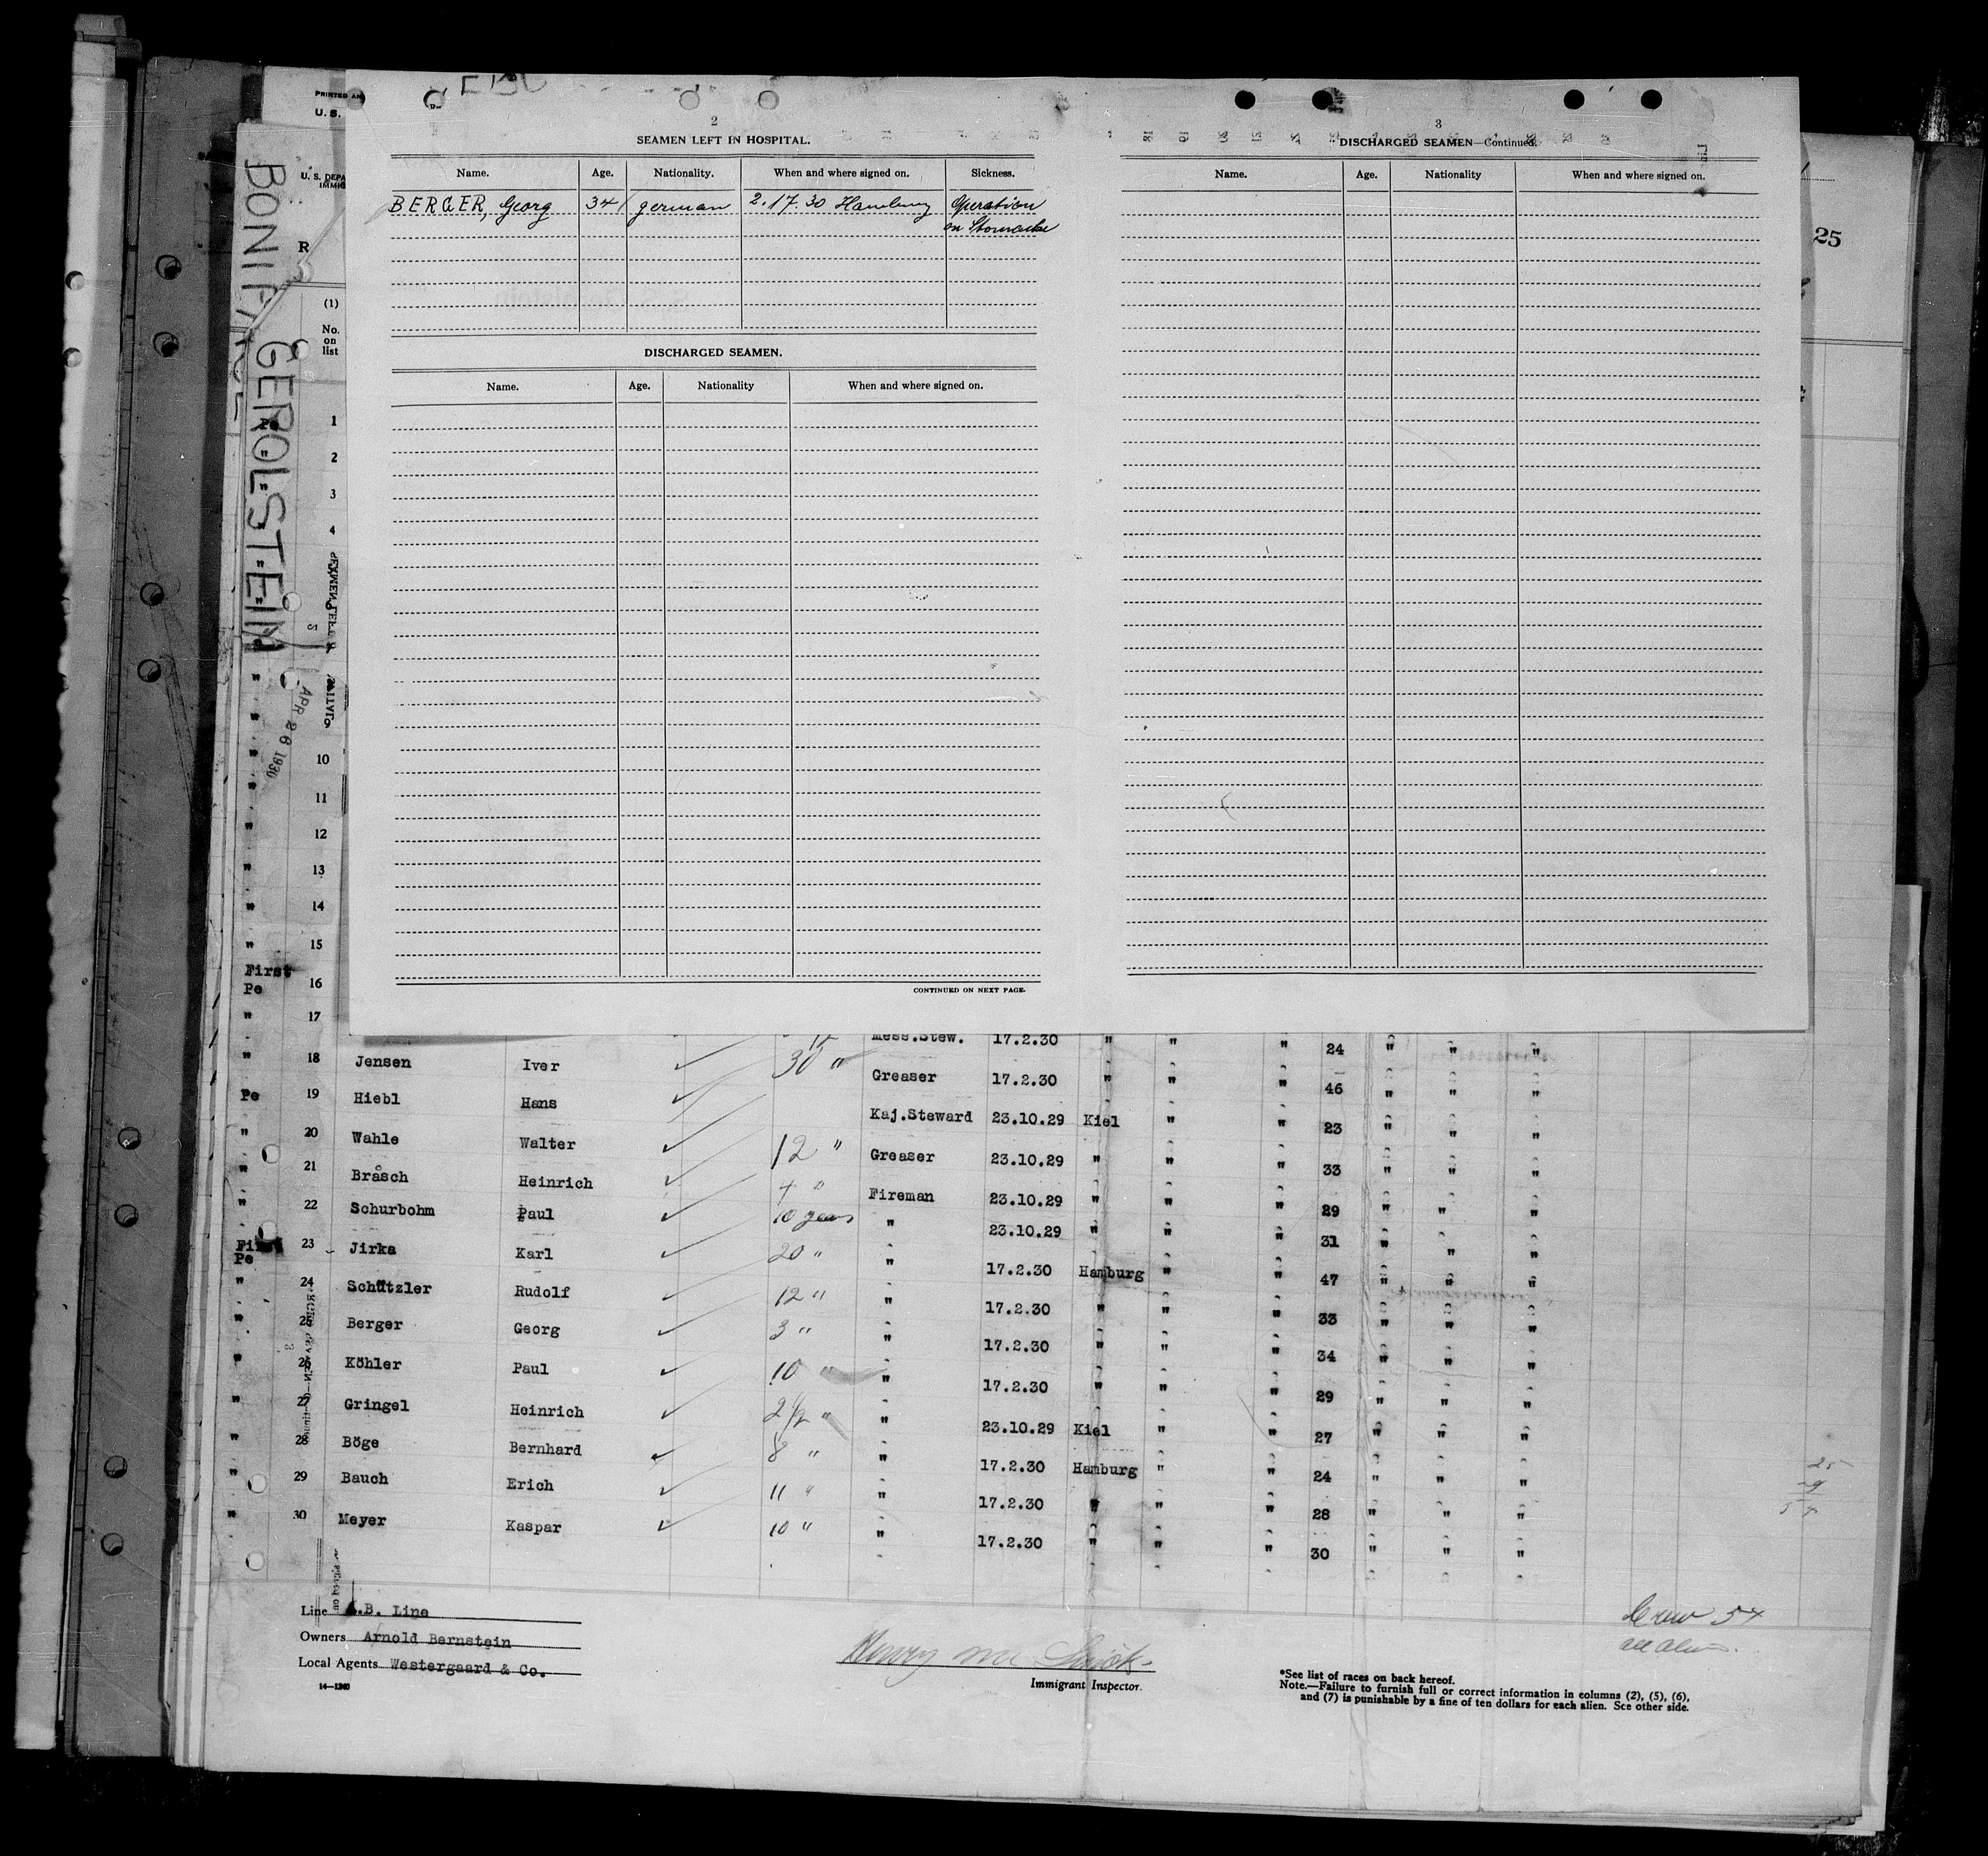 PRINTED
U. S.
U. S. DEPA
IMMIG
BONIFACE
GEROLSTEIN
APR 26 1930
R
25
2
SEAMEN LEFT IN HOSPITAL.
Name. Age. Nationality. When and where signed on. Sickness.
BERGER, Georg 34 german 2.17.30 Hamburg Operation
on
DISCHARGED SEAMEN.
Name. Age. Nationality When and where signed on.
CONTINUED ON NEXT PAGE.
3
DISCHARGED SEAMEN—Continued.
Name. Age. Nationality When and where signed on.
(1)
No.
on
list
1
2
3
4
10
11
12
13
14
15
First
Pe 16
" 17 Mess.Stew. 17.2.30 " " " 24 " " "
" 18 Jensen Iver 30 " Greaser 17.2.30 " " " 46 " " "
Pe 19 Hiebl Hans Kaj.Steward 23.10.29 Kiel " " 23 " " "
" 20 Wahle Walter 12 " Greaser 23.10.29 " " " 33 " " "
" 21 Bråsch Heinrich 4 " Fireman 23.10.29 " " " 29 " " "
" 22 Schurbohm Paul 10 years " 23.10.29 " " " 31 " " "
First
Pe 23 Jirka Karl 20 " " 17.2.30 Hamburg " " 47 " " "
" 24 Schützler Rudolf 12 " " 17.2.30 " " " 33 " " "
" 25 Berger Georg 3 " " 17.2.30 " " " 34 " " "
" 26 Köhler Paul 10 " " 17.2.30 " " " 29 " " "
" 27 Gringel Heinrich 2 1/2 " " 23.10.29 Kiel " " 27 " " "
" 28 Böge Bernhard 8 " " 17.2.30 Hamburg " " 24 " " "
" 29 Bauch Erich 11 " " 17.2.30 " " " 28 " " "
" 30 Meyer Kaspar 10 " " 17.2.30 " " " 30 " " "
25
29
54
Line A.B. Line
Owners Arnold Bernstein
Local Agents Westergaard & Co.
14—1240
Immigrant Inspector.
Crew 54
all
*See list of races on back hereof.
Note.—Failure to furnish full or correct information in columns (2), (5), (6),
and (7) is punishable by a fine of ten dollars for each alien. See other side.